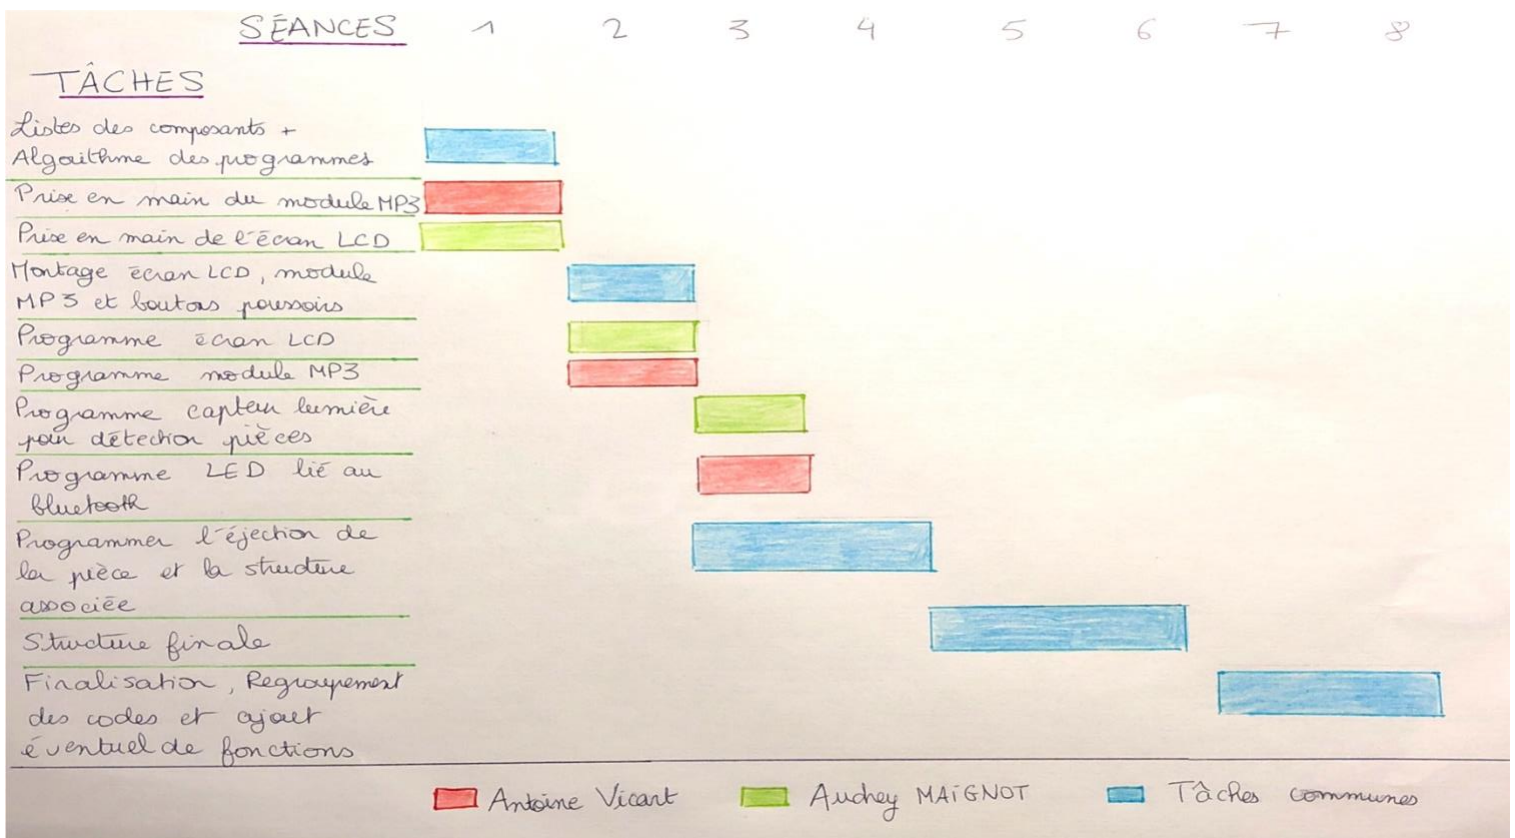 SÉANCES 1 2 3 4 5 6 7 8
TÂCHES
Listes des composants +
Algorithme des programmes
Prise en main du module MP3
Prise en main de l'écran LCD
Montage écran LCD, module
MP3 et boutons poussoirs
Programme écran LCD
Programme module MP3
Programme capteur lumière
pour détection pièces
Programme LED lié au
bluetooth
Programmer l'éjection de
la pièce et la structure
associée
Structure finale
Finalisation, Regroupement
des codes et ajout
éventuel de fonctions
Antoine Vicart Audrey MAiGNOT Tâches communes